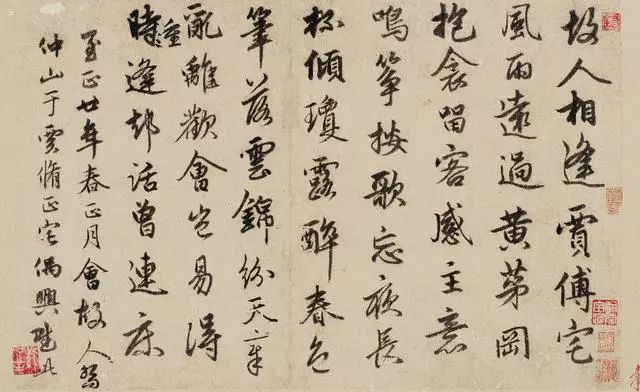 故人相逢賈傅宅
風雨遠過黃茅岡
抱衾留客感主意
鳴箏按歌忘夜長
杯傾瓊露醉春色
筆落雲錦紛天章
亂離歡會豈易得
時重逢却話曾連床
至正廿年春正月會故人
仲山于雲脩正宅偶興此